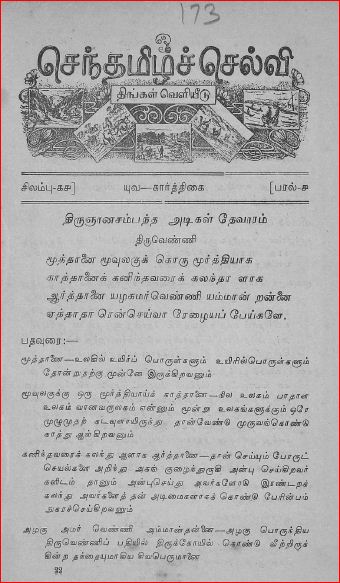 173
செந்தமிழ்ச் செல்வி
திங்கள் வெளியீடு
சிலம்பு-கச] யுவ—கார்த்திகை [பரல்-ச
திருஞானசம்பந்த அடிகள் தேவாரம்
திருவெண்ணி
மூத்தானை மூவுலகுக் கொரு மூர்த்தியாக
காத்தானைக் கனிந்தவரைக் கலந்தா ளாக
ஆர்த்தானை யழகமர்வெண்ணி யம்மான் றன்னை
ஏத்தாதா ரென்செய்வா ரேழையப் பேய்களே.
பதவுரை:—
மூத்தானை—உலகில் உயிர்ப் பொருள்களும் உயிரில்பொருள்களும்
தோன்றுதற்கு முன்னே இருக்கிறவனும்
மூவுலகுக்கு ஒரு மூர்த்தியாய்க் காத்தானை—நில உலகம் பாதாள
உலகம் வானவருலகம் என்னும் மூன்று உலகங்களுக்கும் ஒரே
முழுமுதற் கடவுளாயிருந்து தான்வேண்டு முருவங்கொண்டு
காத்து ஆள்கிறவனும்
கனிந்தவரைக் கலந்து ஆளாக ஆர்த்தானை—தான் செய்யும் பேரருட்
செயல்களை அறிந்து அகம் குழைந்துருகி அன்பு செய்கிறவர்
களிடம் தானும் அன்புசெய்து அவர்களோடு இரண்டறக்
கலந்து அவர்களைத் தன் அடிமைகளாகக் கொண்டு பேரின்பம்
அகரச்செய்கிறவனும்
அழகு அமர் வெண்ணி அம்மான்தன்னை—அழகு பொருந்திய
திருவெண்ணிப் பதியில் திருக்கோயில் கொண்டு வீற்றிருக்
கின்ற தந்தையுமாகிய சிவபெருமானை